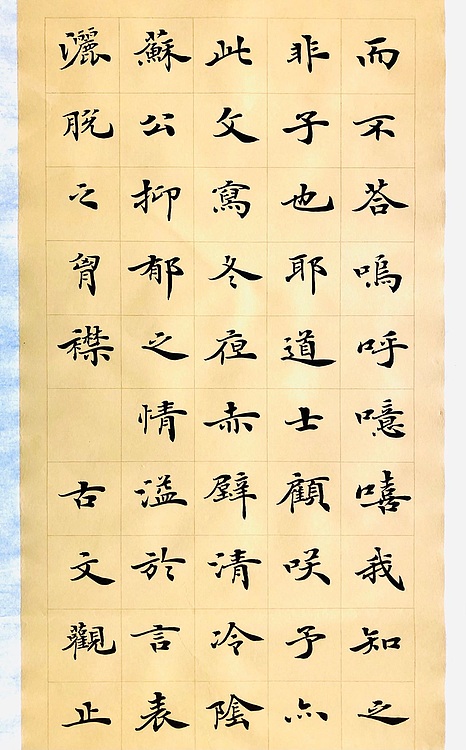 而不荅嗚呼噫嘻我知之
非子也耶道士顧咲予亦
此文寫冬夜赤壁清冷陰
蘇公抑郁之情溢於言表
灑脫之胷襟 古文觀止